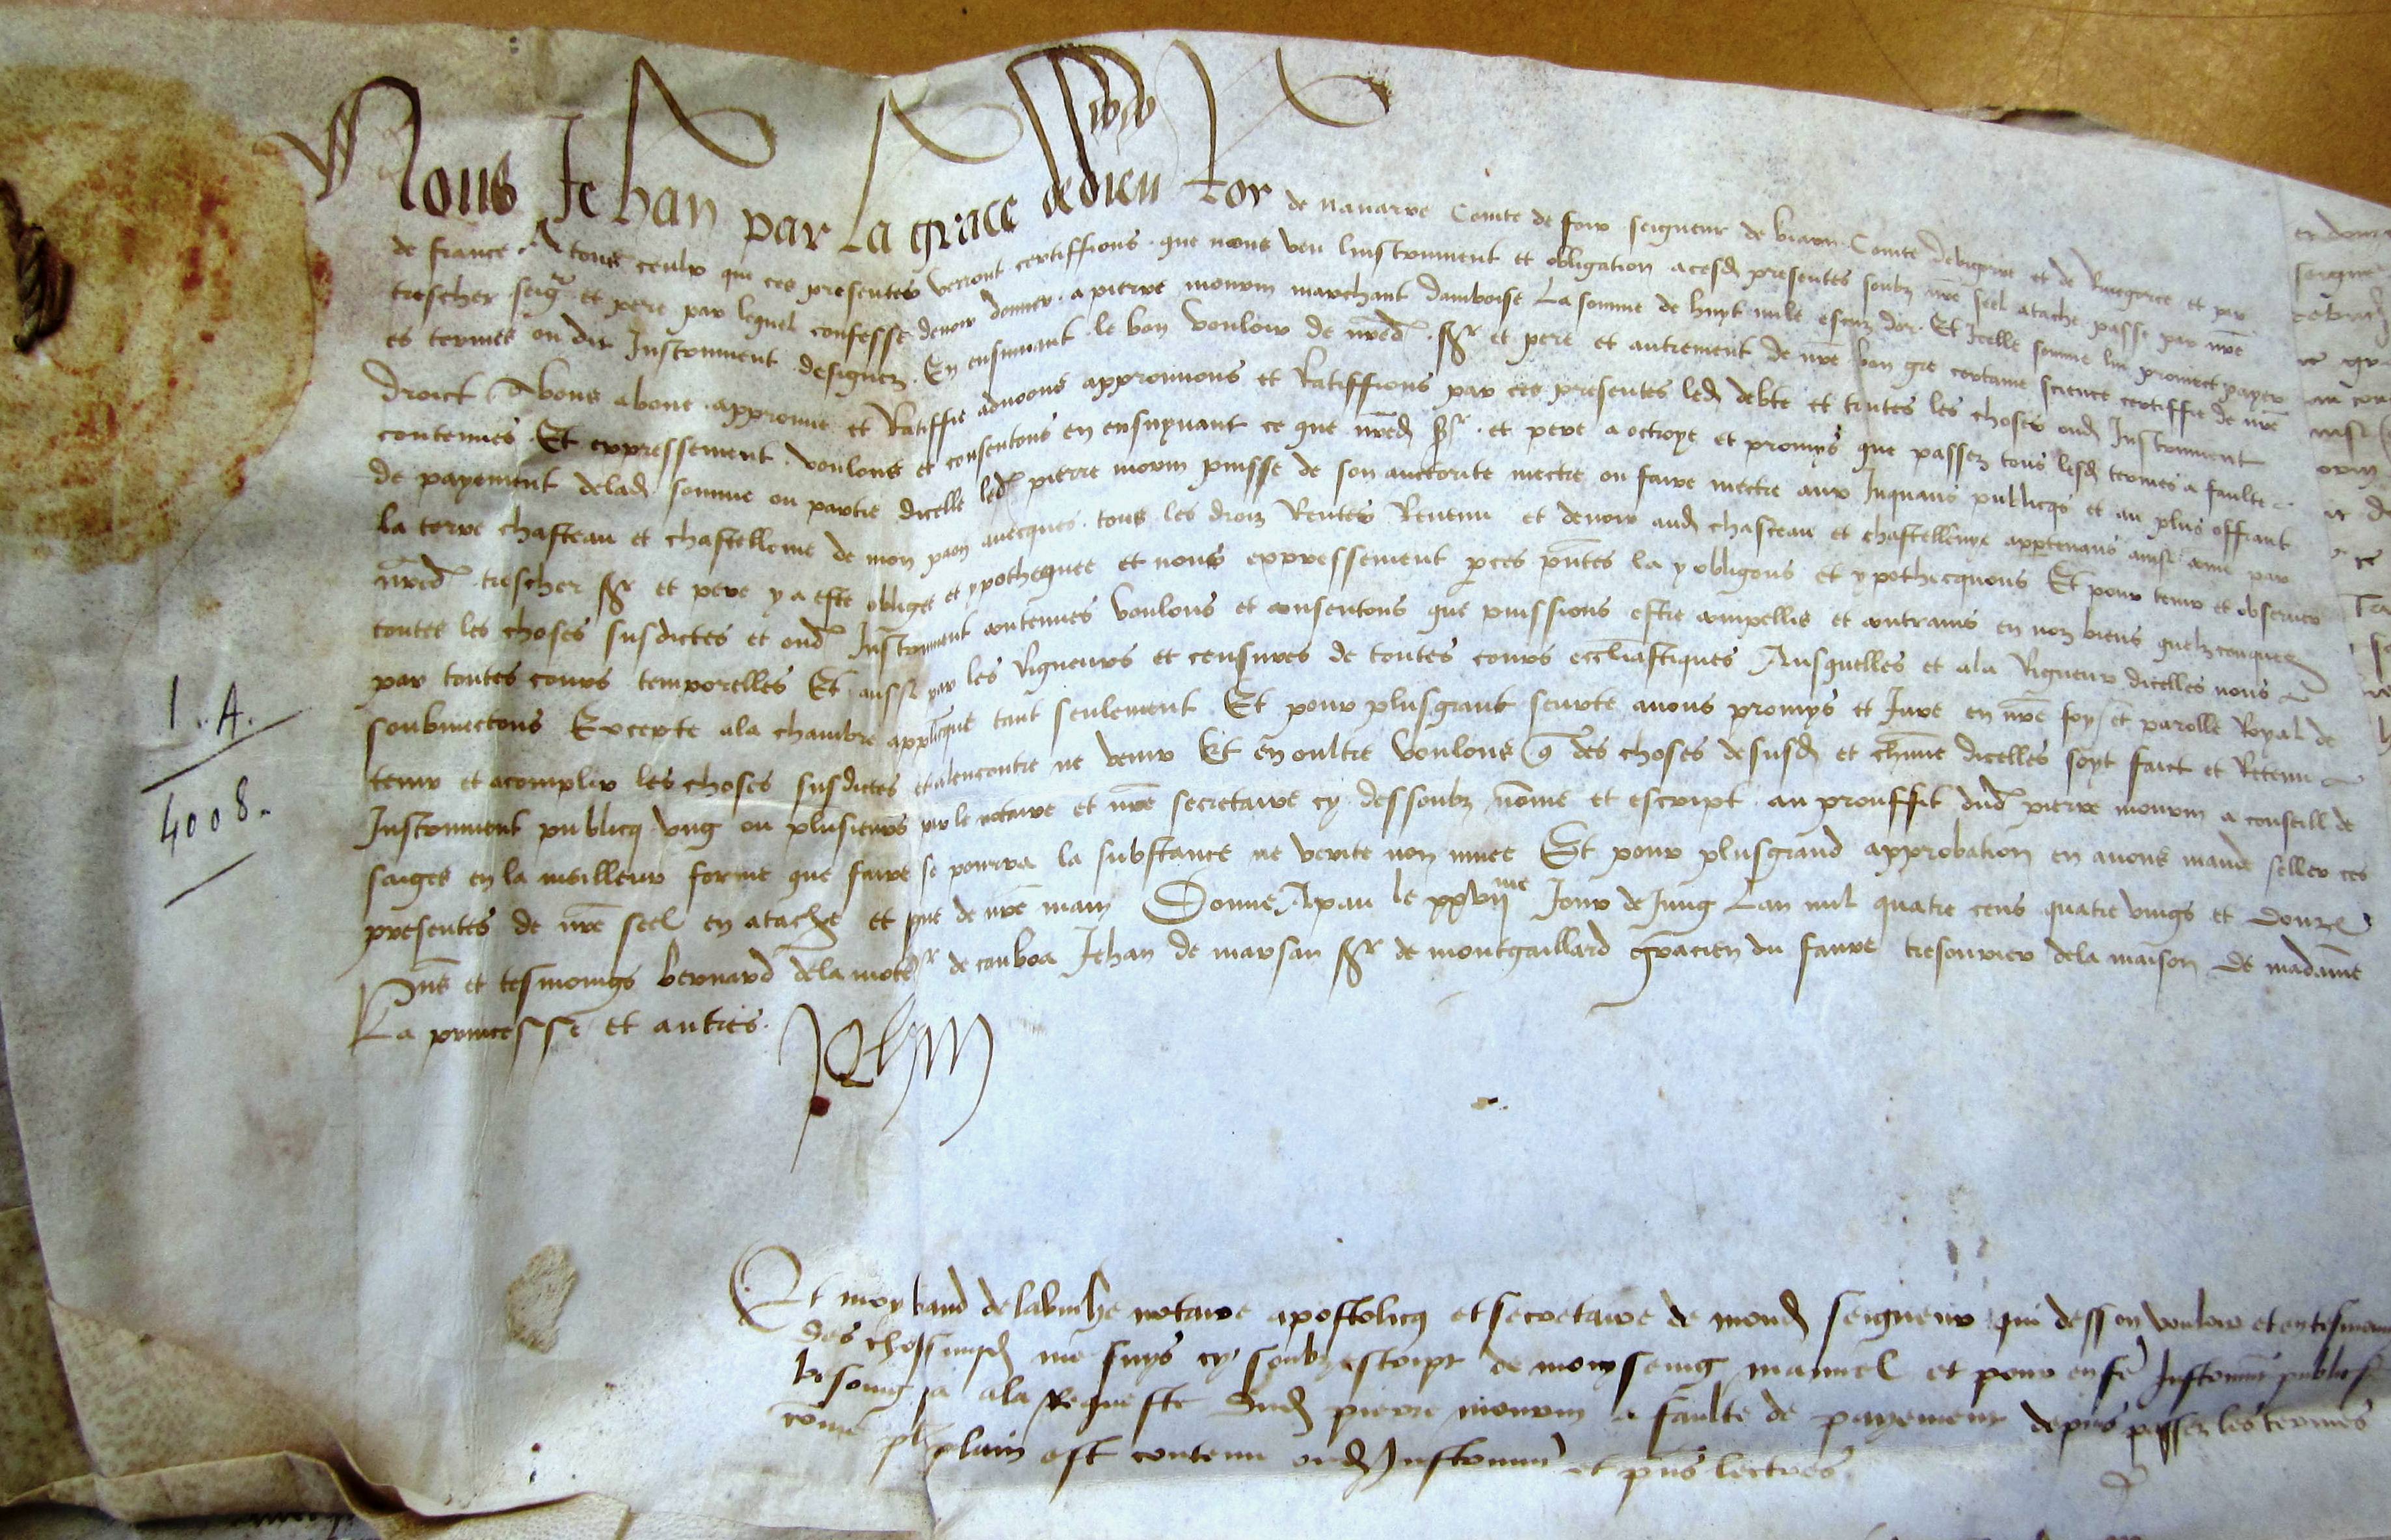 Nous Jehan par la grace de dieu Roy de navarre Comte de foix seigneur de bearn Comte de bigorre et de Ribegorce et par
de france A tous ceulx qui ces presentes verront certiffions que nous veu linstrument et obligation a cesd presentes soubz nre seel atache passe par nre
trescher seigr et pere par lequel confesse devoir donner a pierre morin marchant damboise La somme de huyt mile escuz dor Et Icelle somme luy promect payer
es termes ou dit Instrument designez En ensuivant le bon vouloir de nred sgr et pere et autrement de nre bon gre certaine science certiffie de nre
droict Avons aboue approuve et Ratiffie advoons approuvons et Ratiffions par ces presentes led debte et toutes les choses oud Instrument
contenues Et expressement voulons et consentons en ensuyvant ce que nred sgr et pere a octroye et promys que passez tous lesd termes a faulte
de payement delad somme ou partie dicelle led pierre morin puisse de son auctorite mectre ou faire mectre aux Inquans publicqs et au plus offrant
la terre chasteau et chastellenie de mon avecques tous les droiz Rentes Revenu et devoir aud chasteau et chastellenye appertenans ainsi come par
nred trescher sgr et pere y a este oblige et ypothequee et nous expressement p ces pntes la y obligons et ypothecquons Et pour tenir et observer
toutes les choses susdictes et oud Instrument contenues voulons et consentons que puissions estre compellis et contrains en noz biens quelzconques
par toutes cours temporelles Et aussi par les Rigueurs et censures de toutes cours eccliastiques Ausquelles et ala Rigueur dicelles nous
soubmectons Excepte ala chambre applicque tant seulement Et pour plusgrant seurte avons promys et Jure en nre foy et parolle Royal de
tenir et acomplir les choses susdictes et alencontre ne venir Et en oultre voulons q des choses desusd et chune dicelles soyt faict et Retenu
Instrument publicq ung ou plusieurs par le notaire et nre secretaire cy dessoubz nome et escript au prouffit dud pierre morin a conseill de
saiges en la meilleur forme que faire se pourra la substance ne verite non muee Et pour plusgrand approbation en avons mande seller ces
presentes de nre seel en atache et signe de nre main Donne A pau le xxviime Jour de Jung Lan mil quatre cens quatre vings et douze
Pns et tesmoings bernard dela mote sr de Jehan de marsan sgr de montgaillard gracien du faure tresourier dela maison de madame
La princesse et autres.
Jehan
I. A.
4008.
Et moy notaire apostolicq et secretaire de mond seigneur qui dess on vouloir et en tesmoin
des chos susd me suys cy soubzescript de mon seing manuel et pour en fe Instrumt publicq
besoing ja ala Requeste dud pierre morin a faulte de payement depuis passez les termes
come plus plain est contenu oud Instrumt et pns lectres